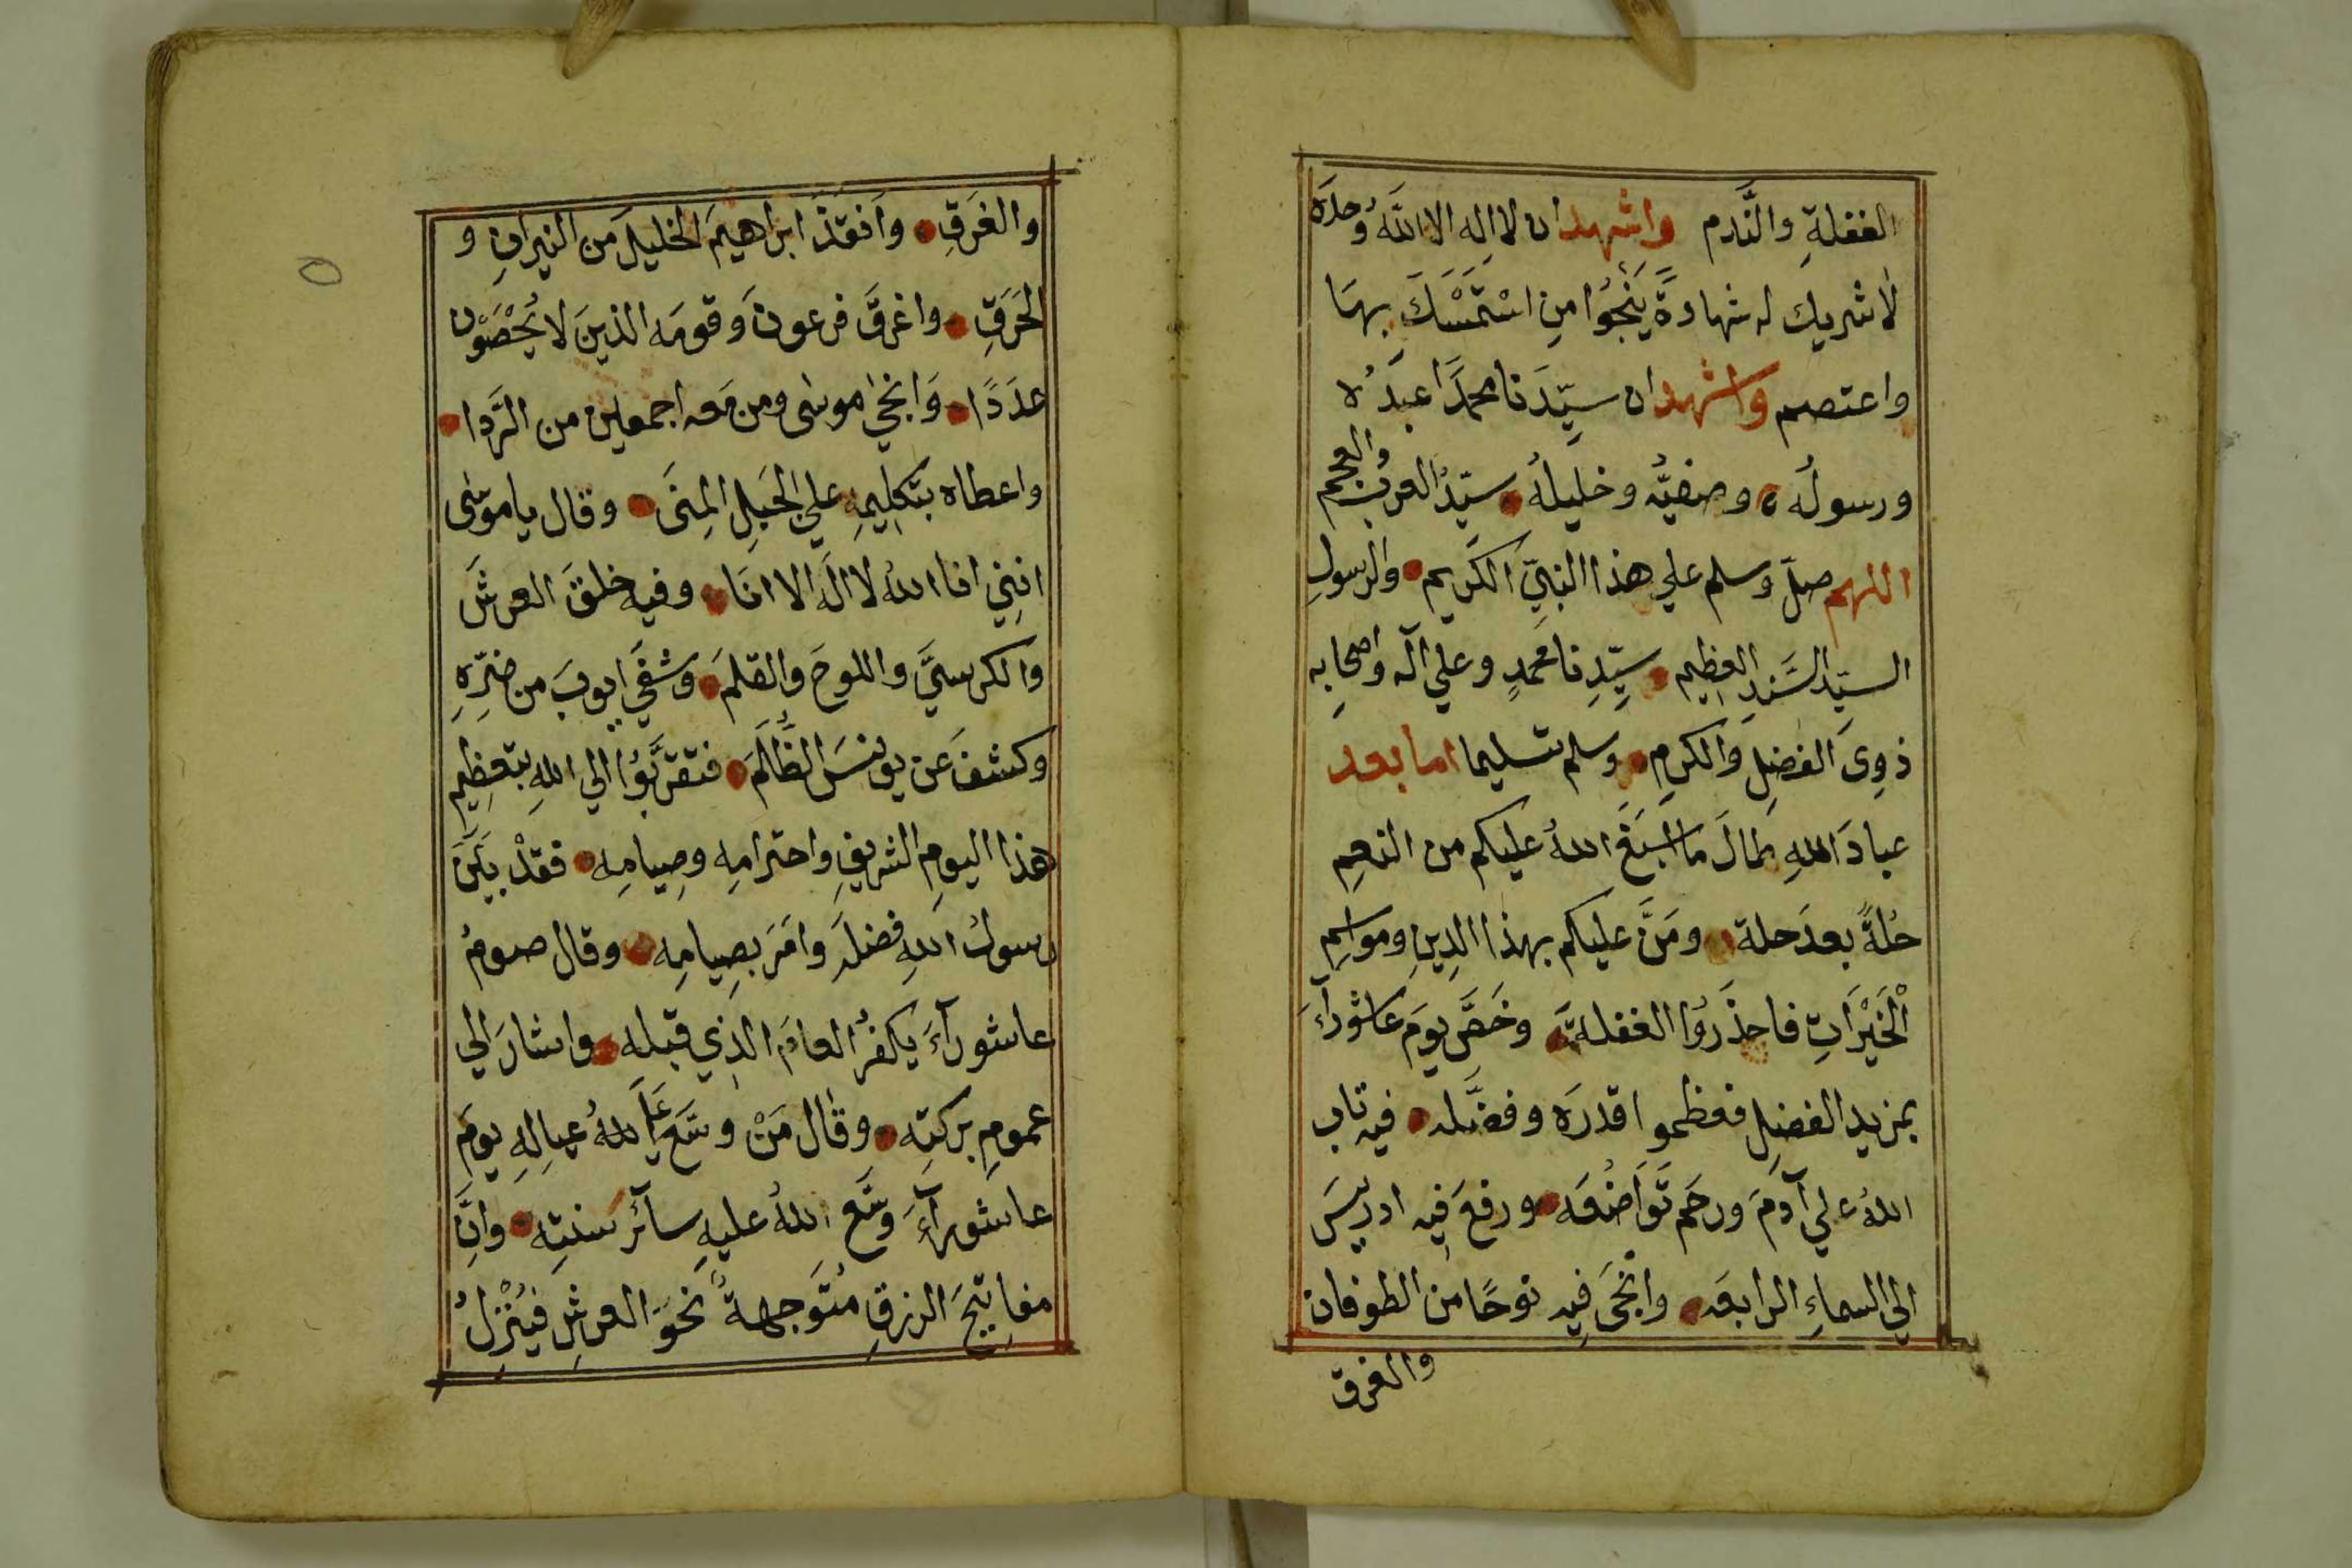 الغفلةِ والنَّدم واشهد ان لا اِله الا اللّهُ وحدَه
لا شريك له شهادةً يَنْجُوا مِن اسْتَمْسَكَ بهَا
واعتصم واشهد ان سيِّدَنا محمدًا عبدُه
ورسولُه وصفيُّه وخليلُه سيّدُ العربِ والعجم
اللهم صلّ وسلم علي هذا النبيِّ الكَريم والرسولِ
السيّد السَّندِ العظِيم سيّدِنا محمدٍ وعلي آله واصحابِه
ذوِي الفضلِ والكرمِ وسلم تسليما اما بعد
عبادَ اللهِ طالَ ما اسْبَغَ اللهُ عليكم من النعمِ
حُلةً بعدَ حلة ومَنَّ عليكم بهذا الدِينِ ومواسِمِ
الْخَيْرَاتِ فاحذَرُوا الغفلة وخَصَّ يومَ عاشورآءَ
بمزيد الفضلِ فعظموا قدرَه وفضَّله فيه تاب
اللهُ علي آدمَ ورحم تَوَاضُعَه ورفعَ فِيه ادريسَ
الي السماءِ الرابعَه وانْجَى فِيه نوحًا من الطوفان
والغرق
والغَرَقِ وَانقذَ ابراهيمَ الخليلَ من النيرانِ و
الحَرَقِ واغرقَ فرعونَ وقومَه الذينَ لا يُحْصَوْن
عدَدًا وَانجٰي موسٰى ومن مَعه اجمعين من الرَّدا
واعطاه بتكلِيمِهِ علي الجَبلِ المِنَى وقال ياموسٰى
انِنِي انا اللهُ لا الٓه الا انَا وفيه خلقَ العرشَ
والكرسيَّ واللوحَ والقلمَ وشفَي ايوبَ من ضرِّهِ
وكشفَ عَن يونسَ الظُّلَمَ فتقرَّبُوا الي اللهِ بتعظِيم
هذا اليومِ الشريفِ واحترامِهِ وصِيامِه فقدْ بيَّنَ
رسولُ اللهِ فضلَه وامَرَ بصِيامِه وقال صومُ
عاشورآءَ يكفرُ العامَ الذِي قبله واشارَ الي
عمومِ بركتِه وقال مَنْ وسَّعَ عَليَ اللهُ عيالِهِ يومَ
عاشورآءَ وسَّع اللهُ عليهِ سآئر سنتِه واِنَّ
مفاتيحَ الرزقِ مُتَوجهةٌ نحوَ العرشِ فيُنْزِلُ